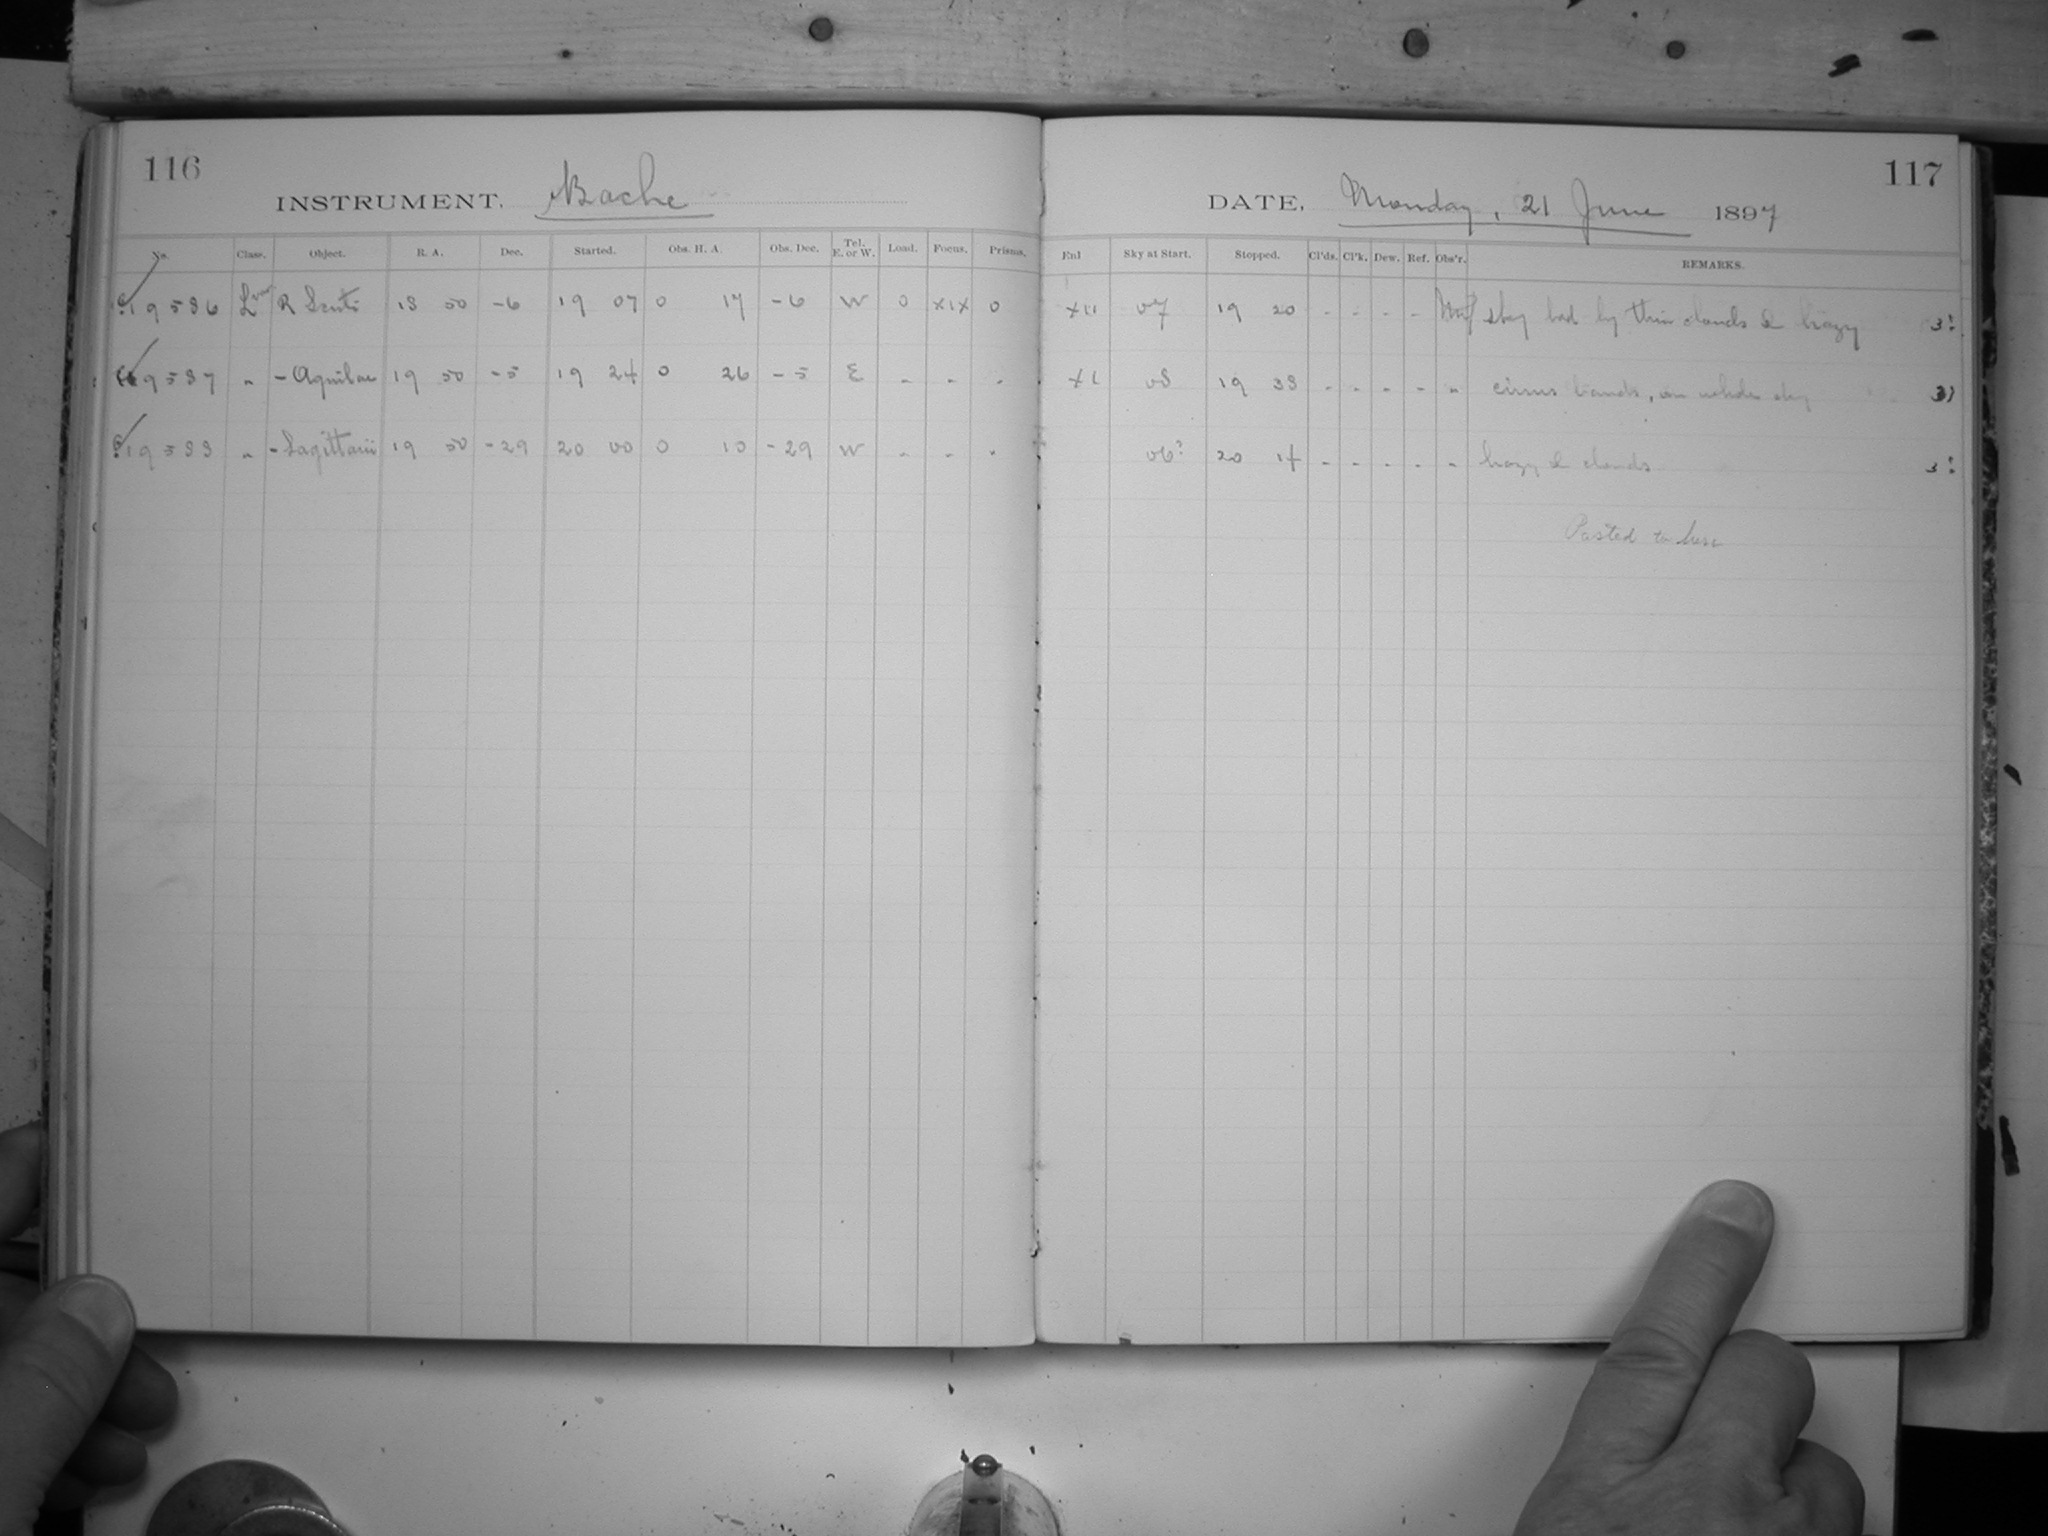 116
INSTRUMENT. Bache
No. Class. Object. R. A. Dec. Started. Obs. H. A. Obs. Dec. Tel. E. or W. Load. Focus. Prisms.
19586 L R Scuti 18 50 -6 19 07 0 17 -6 W 0 XIX 0
19587 " - Aquilae 19 50 -5 19 24 0 26 -5 E " " "
19588 " - Sagittarii 19 50 -29 20 00 0 10 -29 W " " "
117
DATE. Monday, 21 June 1897
Enl Sky at Start. Stopped. Cl'ds. Cl'k. Dew. Ref. Obs'r. REMARKS.
XII 07 19 20 - - - - sky bad by thin clouds & hazy 3?
XI 08 19 38 - - - - " cirrus bands, on whole sky
06? 20 14 - - - - " hazy & clouds 3?
Posted to here